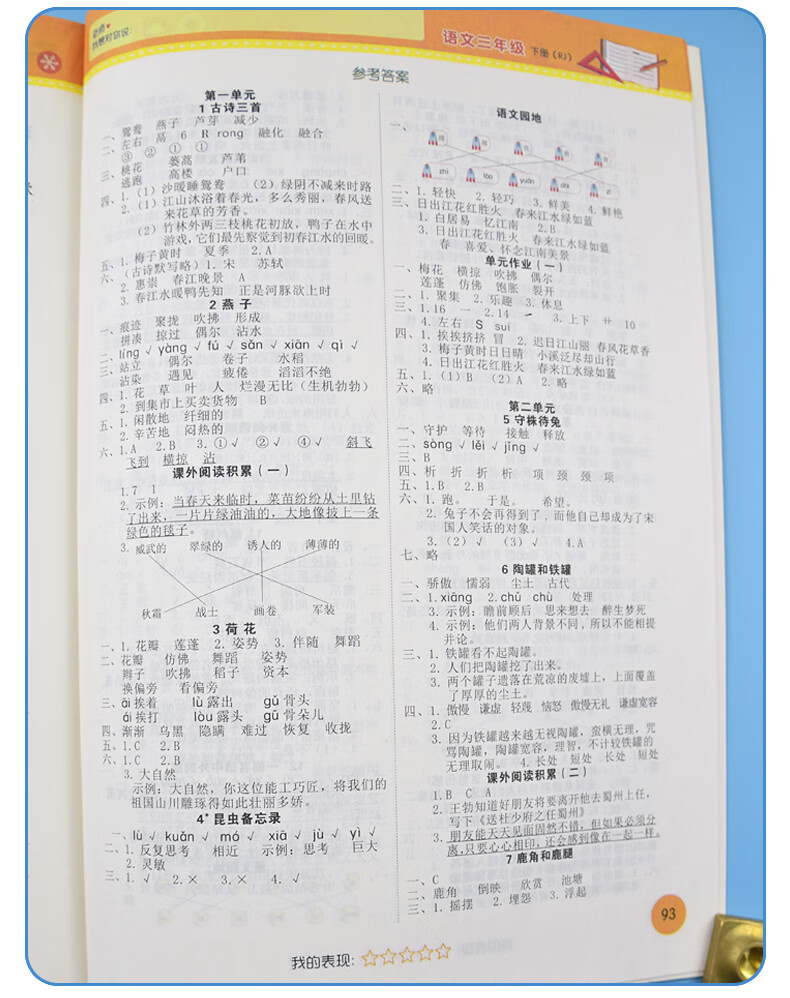 老师
我想对你说:
语文三年级 下册(RJ)
参考答案
第一单元
1 古诗三首
一、鸳鸯 燕子 芦芽 减少
二、左右 鬲 6 R rong 融化 融合
③ ② ① ①
三、桃花 蒌蒿 芦苇
逃跑 高楼 户口
四、1.(1)沙暖睡鸳鸯 (2)绿阴不减来时路
2.(1)江山沐浴着春光,多么秀丽,春风送
来花草的芳香。
(2)竹林外两三枝桃花初放,鸭子在水中
游戏,它们最先察觉到初春江水的回暖。
五、1.梅子黄时 夏季 2.A
六、(古诗默写略)1.宋 苏轼
2.惠崇 春江晚景 A
3.春江水暖鸭先知 正是河豚欲上时
2 燕子
一、痕迹 聚拢 吹拂 形成
拼凑 掠过 偶尔 沾水
二、líng √ yàng √ fú √ sǎn √ xiān √ qì √
三、站立 偶尔 卷子 水稻
沾染 遇见 疲倦 滔滔不绝
四、1.花 草 叶 人 烂漫无比(生机勃勃)
2.到集市上买卖货物 B
五、1.闲散地 纤细的
2.辛苦地 闷热的
六、1.A 2.B 3.①√ ②√ ④√ 斜飞
飞到 横掠 沾
课外阅读积累(一)
1.7 1
2.示例:当春天来临时,菜苗纷纷从土里钻
了出来,一片片绿油油的,大地像披上一条
绿色的毯子。
3.威武的 翠绿的 诱人的 薄薄的
秋霜 战士 画卷 军装
3 荷花
一、1.花瓣 莲蓬 2.姿势 3.伴随 舞蹈
二、花瓣 仿佛 舞蹈 姿势
辫子 吹拂 稻子 资本
换偏旁 看偏旁
三、āi挨着 lù露出 gǔ骨头
ái挨打 lòu露头 gū骨朵儿
四、渐渐 乌黑 隐瞒 难过 恢复 收拢
五、1.C 2.B
六、1.C 2.B
3.大自然
示例:大自然,你这位能工巧匠,将我们的
祖国山川雕琢得如此壮丽多娇。
4* 昆虫备忘录
一、lù √ kuǎn √ mó √ xiā √ jù √ yì √
二、1.反复思考 相近 示例:思考 巨大
2.灵敏
三、1.√ 2.× 3.× 4.√
语文园地
一、
zhì lóo yuán
二、1.轻快 2.轻巧 3.鲜美 4.鲜艳
三、日出江花红胜火 春来江水绿如蓝
1.白居易 忆江南 2.B
3.日出江花红胜火 春来江水绿如蓝
春 喜爱、怀念江南美景
单元作业(一)
一、梅花 横掠 吹拂 偶尔
莲蓬 仿佛 饱胀 裂开
二、1.聚集 2.乐趣 3.休息
三、1.16 一 2.14 3.上下 艹 10
4.左右 S sui
四、1.挨挨挤挤 冒 2.迟日江山丽 春风花草香
3.梅子黄时日日晴 小溪泛尽却山行
4.日出江花红胜火 春来江水绿如蓝
五、1.(1)B (2)A 2.略
六、略
第二单元
5 守株待兔
一、守护 等待 接触 释放
二、sòng √ lěi √ jǐng √
三、B
四、析 折 折 析 项 颈 颈 项
五、1.B 2.B
六、1.跑。 于是。 希望。
2.兔子不会再得到了,而他自己却成为了宋
国人笑话的对象。
3.(2)√ (3)√ 4.A
七、略
6 陶罐和铁罐
一、骄傲 懦弱 尘土 古代
二、1.xiāng 2.chǔ chù 处理
3.示例:瞻前顾后 思来想去 醉生梦死
4.示例:他们两人背景不同,所以不能相提
并论。
三、1.铁罐看不起陶罐。
2.人们把陶罐挖了出来。
3.两个罐子遗落在荒凉的废墟上,上面覆盖
了厚厚的尘土。
四、1.傲慢 谦虚 轻蔑 恼怒 傲慢无礼 谦虚宽容
2.C
3.因为铁罐越来越无视陶罐,蛮横无理,咒
骂陶罐,陶罐宽容,理智,不计较铁罐的
无理取闹。 4.长处 短处 长处 短处
课外阅读积累(二)
1.B C A
2.王勃知道好朋友将要离开他去蜀州上任,
写下《送杜少府之任蜀州》
3.朋友能天天见面固然不错,但如果必须分
离,只要心心相印,还会感到像在一起一样。
7 鹿角和鹿腿
一、C
二、鹿角 倒映 欣赏 池塘
三、1.摇摆 2.埋怨 3.浮起
93
我的表现: